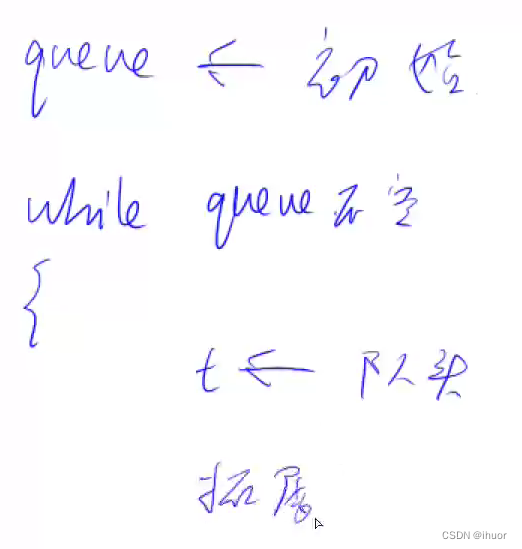 queue ← 初始
while queue不空
{
t ← 队头
拓展
CSDN @ihuor